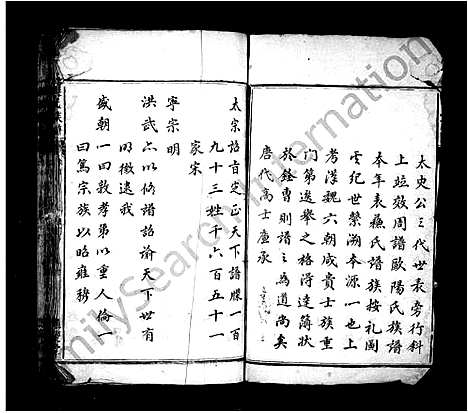 太史公三代世表旁行斜
上竝效周譜歐陽氏族譜
奉年表蘇氏譜族按禮圖
雲紀世繫溯本源一也上
考漢魏六朝咸貴士族重
門第選舉之格得達簿狀
於銓曹則譜之為道尚矣
唐代高士廉承
太宗詔旨定正天下譜牒一百
九十三姓千六百五十一
家宋
寧宗明
洪武亦以脩譜詔諭天下世有
明徵逮我
盛朝一曰敦孝弟以重人倫一
曰篤宗族以昭雍穆